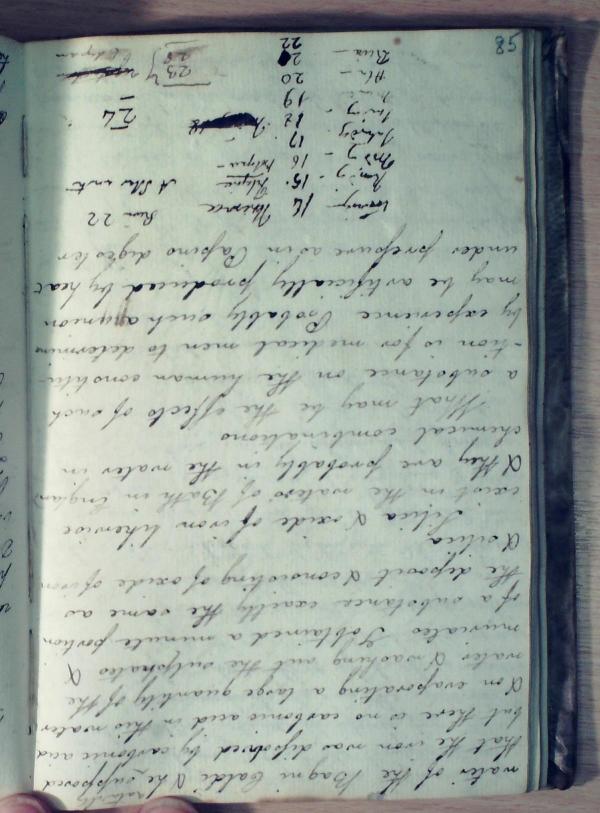 naturally
water of the Bagni Caldi & he supposed
that the iron was dissolved by carbonic acid
but there is no carbonic acid in this water
& on evaporating a large quantity of the
water & washing out the sulphates &
muriates I obtained a minute portion
of a substance exactly the same as
the deposit & consisting of oxide of iron
& silica
Silica & oxide of iron likewise
exist in the waters of Bath in England
& they are probably in the water in
chemical combinations
What may be the effects of such
a substance on the human constitu
-tion is for medical men to determine
by experience Probably such a union
may be artificially produced by heat
under pressure as in Papins digester
14 Florence Rome 22
15
16
17
18 24
19
20
21
22
85